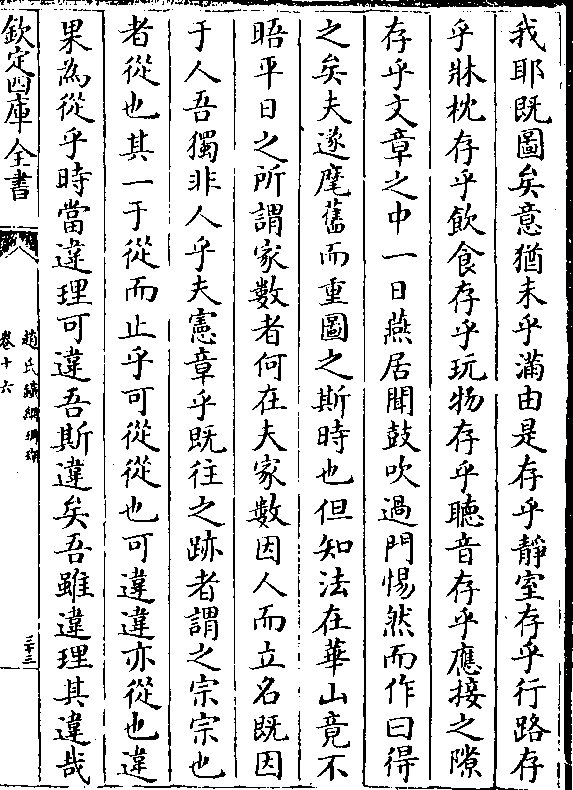 我耶既圖矣意猶未乎滿由是存乎靜室存乎行路存
乎牀枕存乎飲食存乎玩物存乎聽音存乎應接之隙
存乎文章之中一日燕居聞鼓吹過門惕然而作曰得
之矣夫遂麾舊而重圖之斯時也但知法在華山竟不
晤平日之所謂家數者何在夫家數因人而立名既因
于人吾獨非人乎夫憲章乎既往之跡者謂之宗宗也
者從也其一于從而止乎可從從也可違違亦從也違
果為從乎時當違理可違吾斯違矣吾雖違理其違哉
欽定四庫全書
趙氏鐵網珊瑚
卷十六
三十三